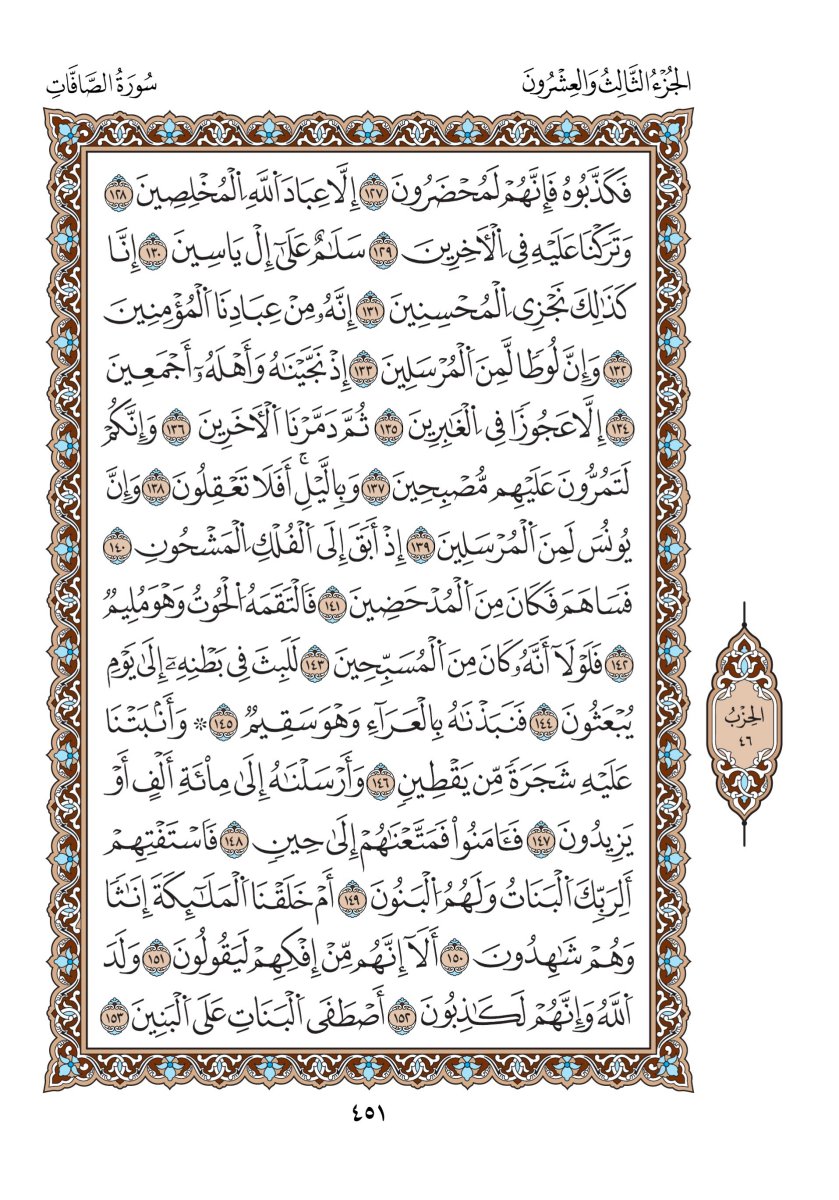 الجُزْءُ الثَّالِثُ وَالعِشْرُونَ
سُورَةُ الصَّافَّاتِ
فَكَذَّبُوهُ فَإِنَّهُمْ لَمُحْضَرُونَ ١٢٧ إِلَّا عِبَادَ اَ۬للَّهِ اِ۬لْمُخْلِصِينَ ١٢٨
وَتَرَكْنَا عَلَيْهِ فِي اِ۬لْأَخِرِينَ ١٢٩ سَلَٰمٌ عَلَىٰٓ إِلْ يَاسِينَ ١٣٠ إِنَّا
كَذَٰلِكَ نَجْزِي اِ۬لْمُحْسِنِينَ ١٣١ إِنَّهُۥ مِنْ عِبَادِنَا اَ۬لْمُؤْمِنِينَ
١٣٢ وَإِنَّ لُوطٗا لَّمِنَ اَ۬لْمُرْسَلِينَ ١٣٣ إِذْ نَجَّيْنَٰهُ وَأَهْلَهُۥٓ أَجْمَعِينَ
١٣٤ إِلَّا عَجُوزٗا فِي اِ۬لْغَٰبِرِينَ ١٣٥ ثُمَّ دَمَّرْنَا اَ۬لْأَخَرِينَ ١٣٦ وَإِنَّكُمْ
لَتَمُرُّونَ عَلَيْهِم مُّصْبِحِينَ ١٣٧ وَبِالَّيْلِۚ أَفَلَا تَعْقِلُونَ ١٣٨ وَإِنَّ
يُونُسَ لَمِنَ اَ۬لْمُرْسَلِينَ ١٣٩ إِذْ أَبَقَ إِلَى اَ۬لْفُلْكِ اِ۬لْمَشْحُونِ ١٤٠
فَسَاهَمَ فَكَانَ مِنَ اَ۬لْمُدْحَضِينَ ١٤١ فَالْتَقَمَهُ اُ۬لْحُوتُ وَهْوَ مُلِيمٌ
١٤٢ فَلَوْلَآ أَنَّهُۥ كَانَ مِنَ اَ۬لْمُسَبِّحِينَ ١٤٣ لَلَبِثَ فِي بَطْنِهِۦٓ إِلَىٰ يَوْمِ
يُبْعَثُونَ ١٤٤ فَنَبَذْنَٰهُ بِالْعَرَآءِ وَهْوَ سَقِيمٌ ١٤٥ * وَأَنۢبَتْنَا
عَلَيْهِ شَجَرَةٗ مِّن يَقْطِينٖ ١٤٦ وَأَرْسَلْنَٰهُ إِلَىٰ مِاْئَةِ أَلْفٍ أَوْ
يَزِيدُونَ ١٤٧ فَـَٔامَنُواْ فَمَتَّعْنَٰهُمْ إِلَىٰ حِينٖ ١٤٨ فَاسْتَفْتِهِمْ
أَلِرَبِّكَ اَ۬لْبَنَاتُ وَلَهُمُ اُ۬لْبَنُونَ ١٤٩ أَمْ خَلَقْنَا اَ۬لْمَلَٰٓئِكَةَ إِنَٰثٗا
وَهُمْ شَٰهِدُونَ ١٥٠ أَلَآ إِنَّهُم مِّنْ إِفْكِهِمْ لَيَقُولُونَ ١٥١ وَلَدَ
اَ۬للَّهُ وَإِنَّهُمْ لَكَٰذِبُونَ ١٥٢ أَصْطَفَى اَ۬لْبَنَاتِ عَلَى اَ۬لْبَنِينَ ١٥٣
الحِزْبُ
٤٦
٤٥١